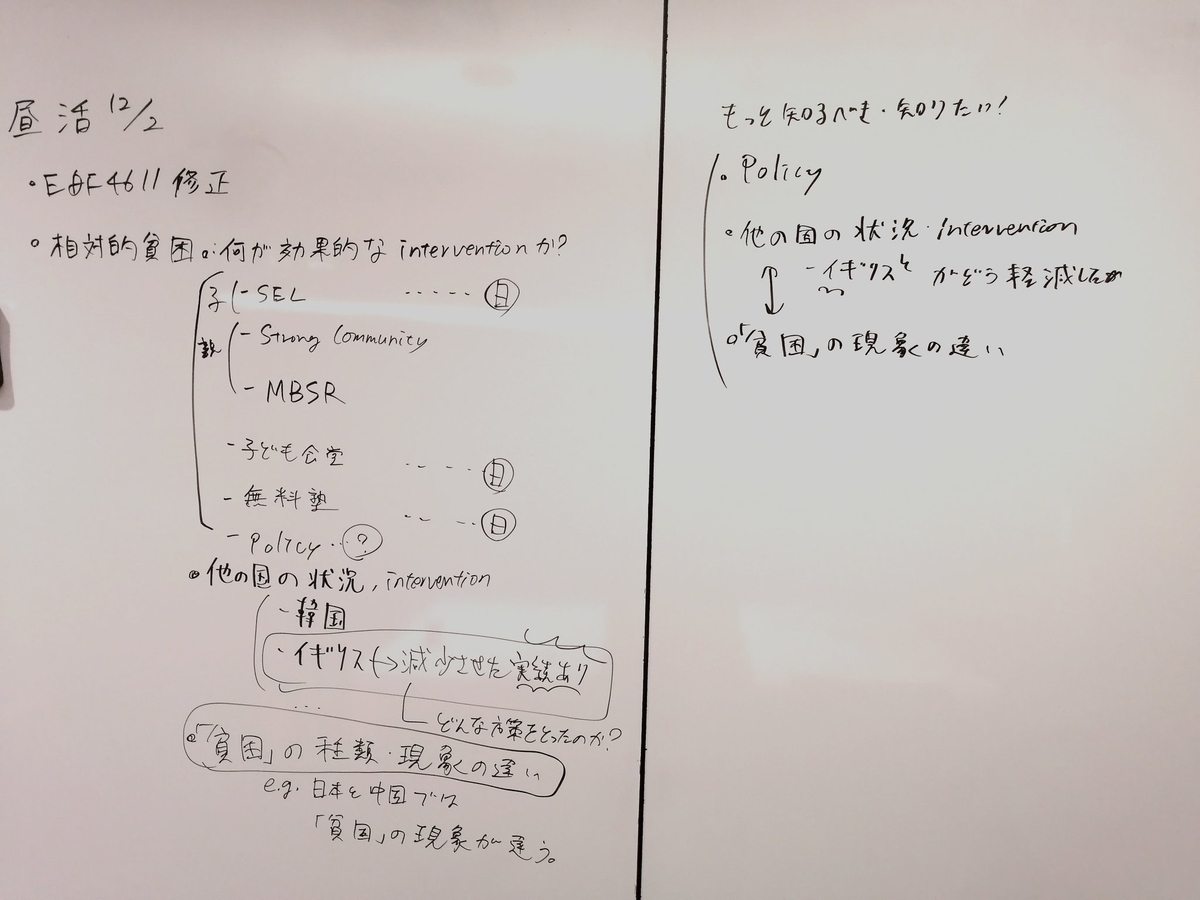 昼活 12/2
・E&F4611 修正
・相対的貧困 何が効果的な interventionか?
子 - SEL ..... 日
親 - Strong Community
- MBSR
- 子ども食堂 ..... 日
- 無料塾 ..... 日
- Policy .. ?
・他の国の状況, intervention
- 韓国
- イギリス → 減少させた実績あり
...
どんな方策をとったのか?
・「貧困」の種類・現象の違い
e.g. 日本と中国では
「貧困」の現象が違う。
もっと知るべき・知りたい!
・Policy
・他の国の状況・intervention
- イギリス がどう軽減したか
・「貧困」の現象の違い